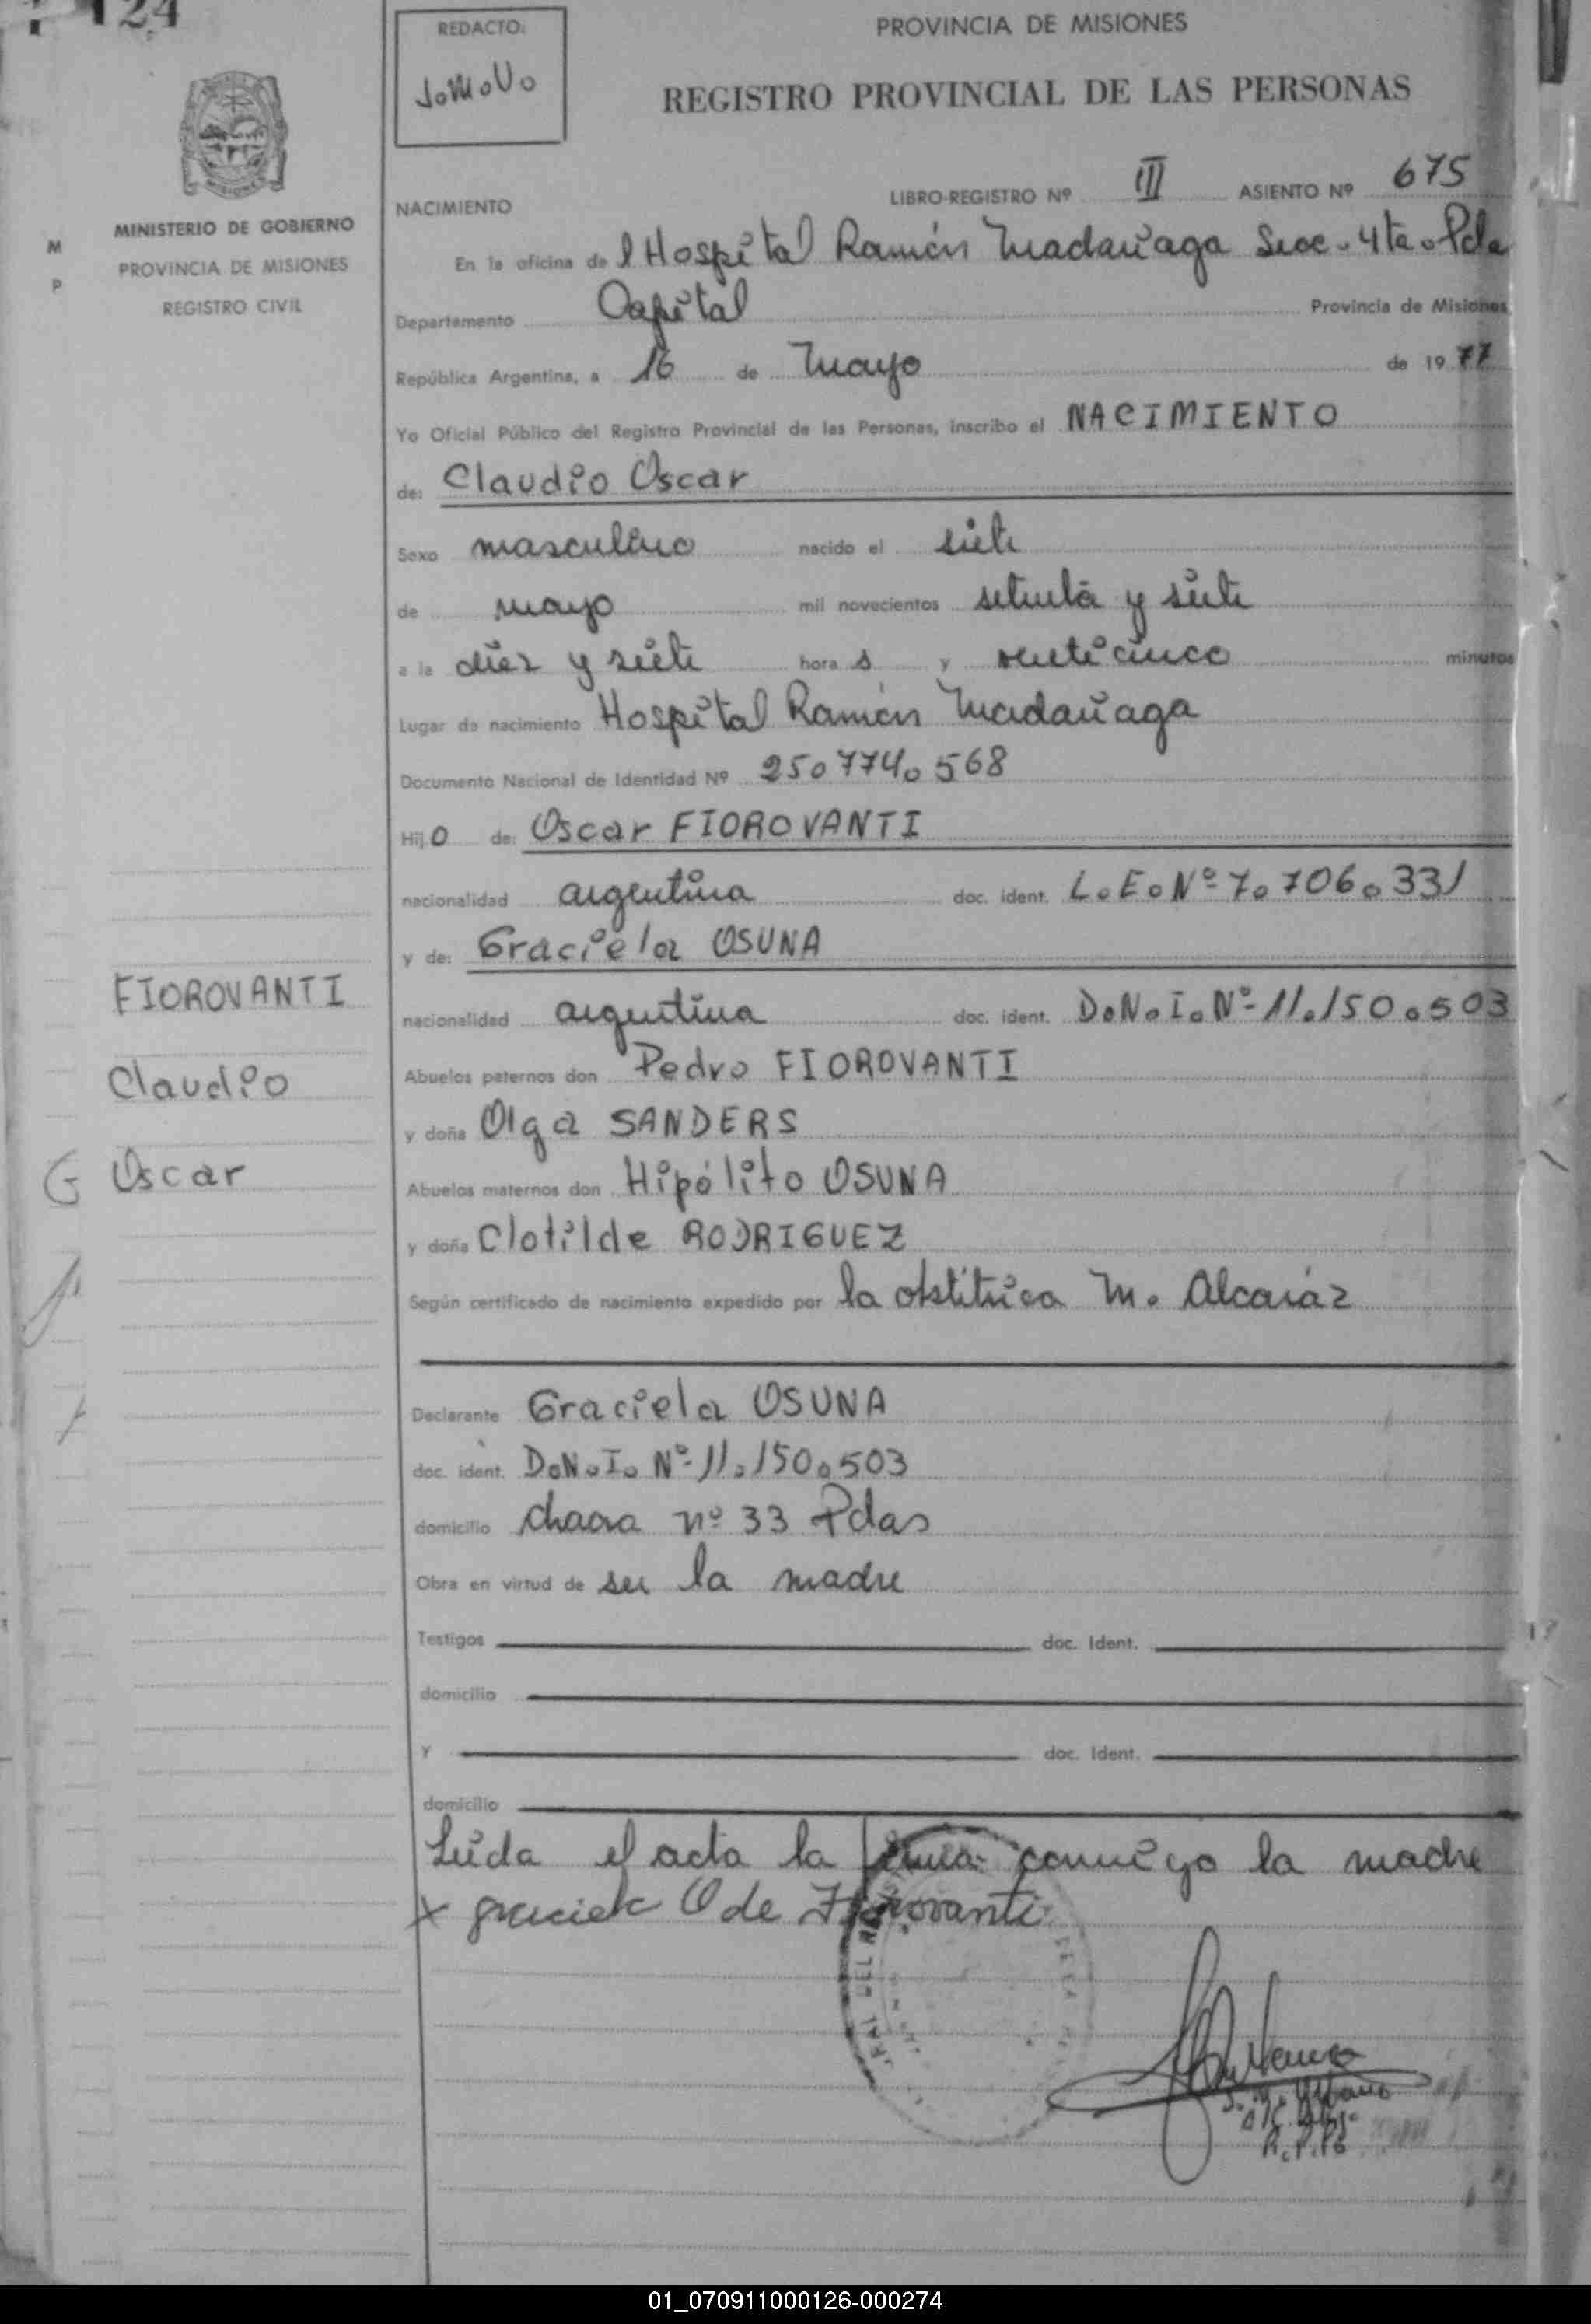 124
REDACTO:
JoMoVo
PROVINCIA DE MISIONES
REGISTRO PROVINCIAL DE LAS PERSONAS
MISIONES
MINISTERIO DE GOBIERNO
PROVINCIA DE MISIONES
REGISTRO CIVIL
M
P
LIBRO-REGISTRO Nº III ASIENTO Nº 675
NACIMIENTO
En la oficina de l Hospital Ramón Madariaga Secc. 4ta. Pda
Departamento Capital Provincia de Misiones
República Argentina, a 16 de Mayo de 19 77
Yo Oficial Público del Registro Provincial de las Personas, inscribo el NACIMIENTO
de: Claudio Oscar
Sexo masculino nacido el siete
de mayo mil novecientos setenta y siete
a la diez y siete hora s y veinticinco minutos
Lugar de nacimiento Hospital Ramón Madariaga
Documento Nacional de Identidad Nº 25.774.568
Hij o de: Oscar FIOROVANTI
nacionalidad argentina doc. ident. L.E.Nº 7.706.331
y de: Graciela OSUNA
nacionalidad argentina doc. ident. D.N.I.Nº 11.150.503
Abuelos paternos don Pedro FIOROVANTI
y doña Olga SANDERS
Abuelos maternos don Hipólito OSUNA
y doña Clotilde RODRIGUEZ
Según certificado de nacimiento expedido por la obstétrica M. Alcaráz
FIOROVANTI
Claudio
Oscar
Declarante Graciela OSUNA
doc. ident. D.N.I. Nº 11.150.503
domicilio chacra nº 33 Pdas
Obra en virtud de ser la madre
Testigos doc. Ident.
domicilio
y doc. Ident.
domicilio
Leída el acta la firma conmigo la madre
x graciela O de Fiorovanti
01_070911000126-000274